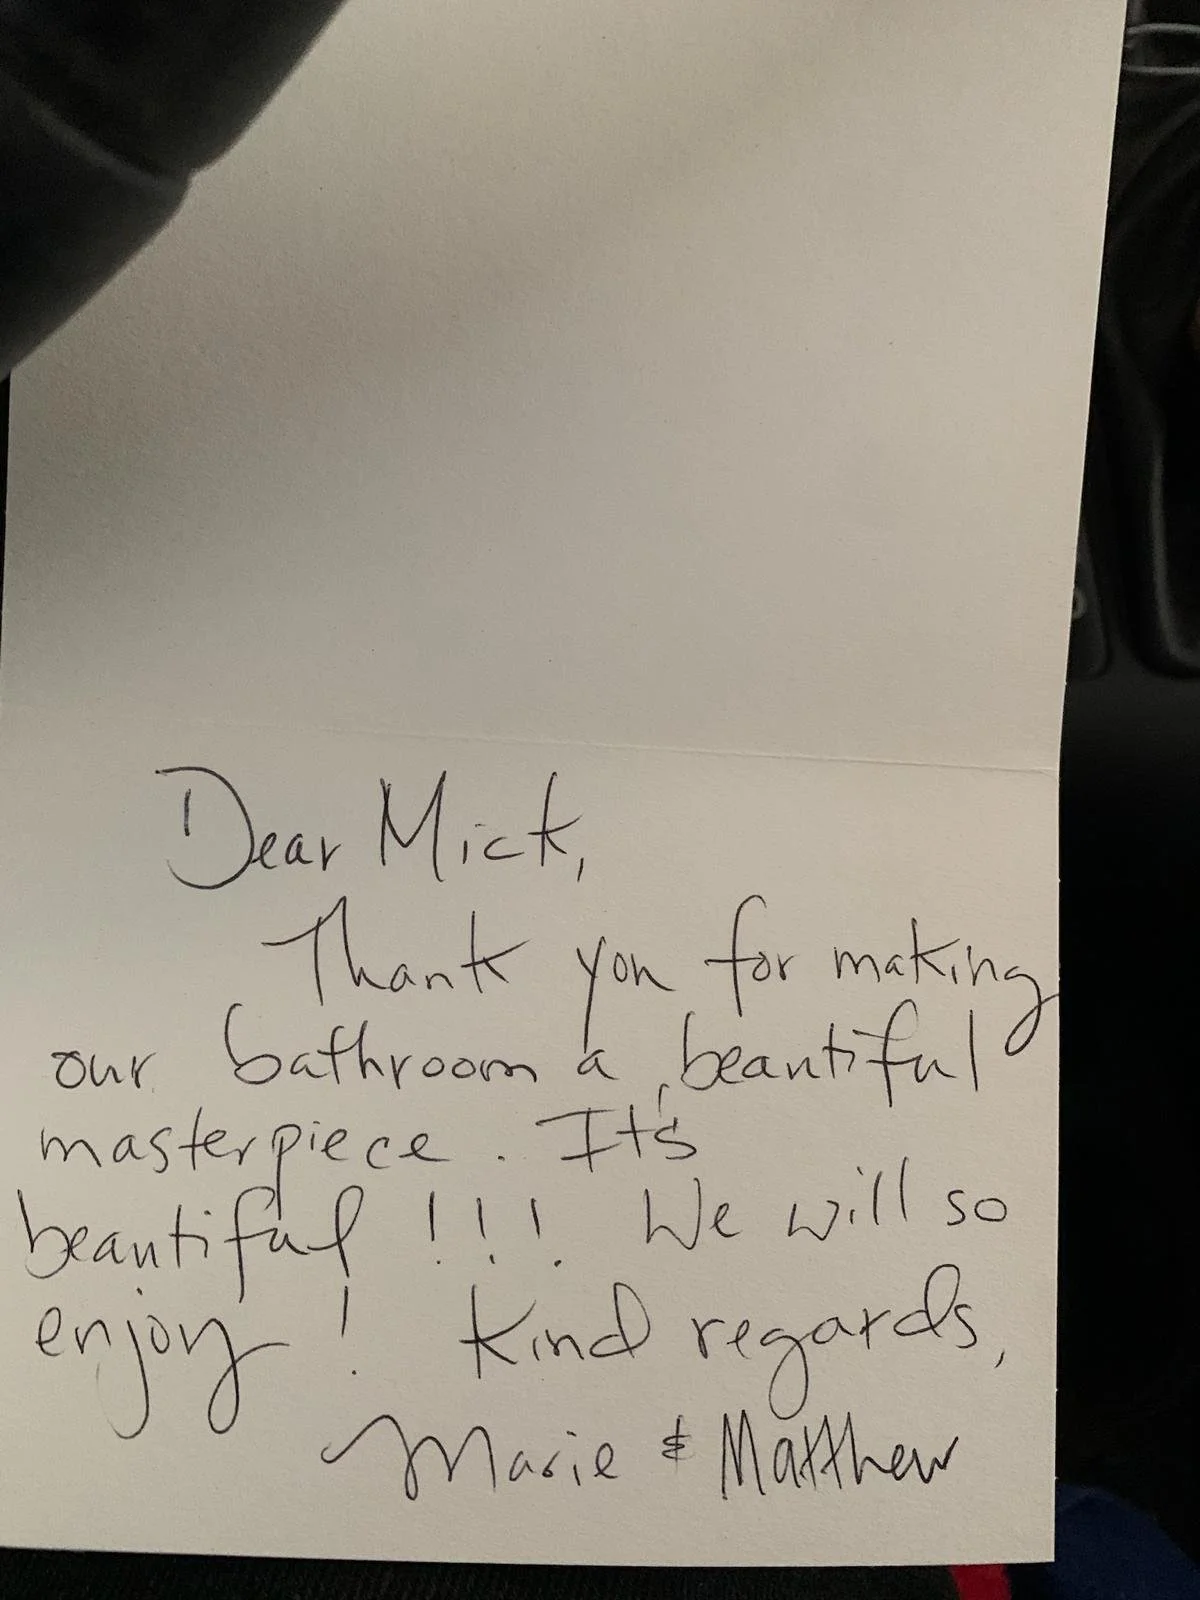 Dear Mick,
Thank you for making
our bathroom a beautiful
masterpiece. It's
beautiful!!! We will so
enjoy! Kind regards,
Marie & Matthew